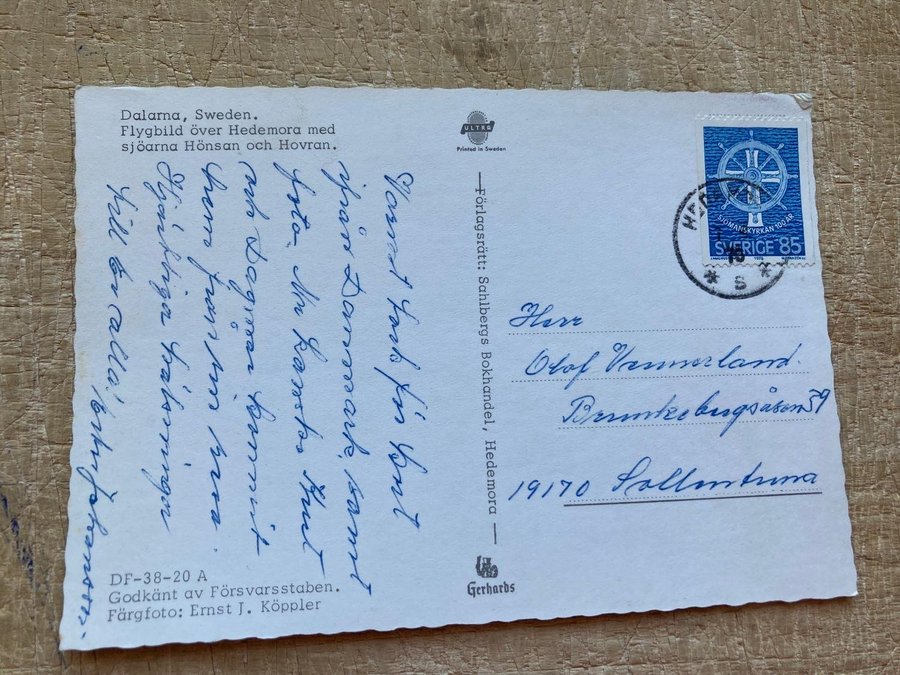 Dalarna, Sweden.
Flygbild över Hedemora med
sjöarna Hönsan och Hovran.
Varmt tack för kort
ifrån Danmark, samt
foto. Nu kanske Knut
och Dagmar kommit
hem från sin resa.
Hjärtliga hälsningar
till Er alla!
DF-38-20 A
Godkänt av Försvarsstaben.
Färgfoto: Ernst J. Köppler
ULTRA
Printed in Sweden
Förlagsrätt: Sahlbergs Bokhandel, Hedemora
Gerhards
SJÖMANSKYRKAN 100 ÅR
SVERIGE 85
S
Herr
Olof Vennerland
Brunkebergsåsen 59
19170 Sollentuna